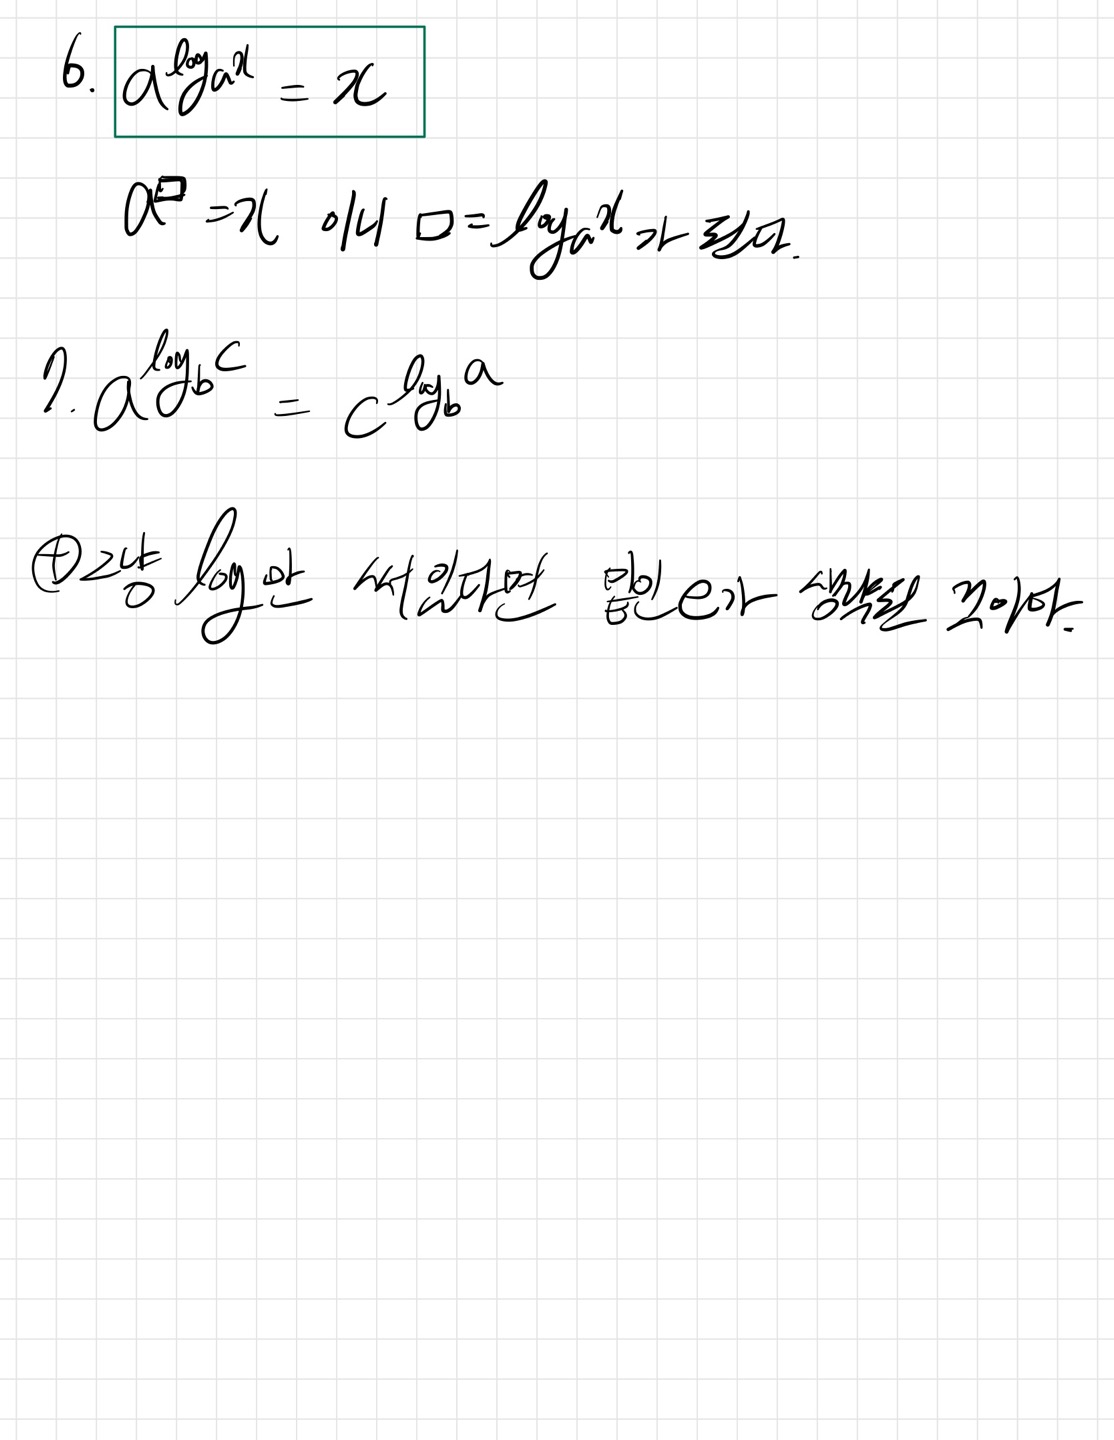 6. a^{log_a x} = x
a^□ = x 이니 □ = log_a x 가 된다.
7. a^{log_b c} = c^{log_b a}
⊕ 그냥 log만 써있다면 밑인 e가 생략된 것이다.